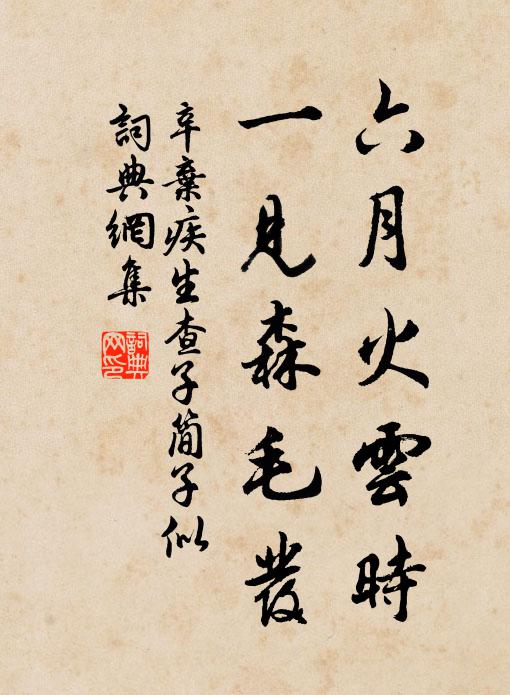 六月火雲時
一見森毛發
辛棄疾生查子簡子似
詞典網集
詞典網印